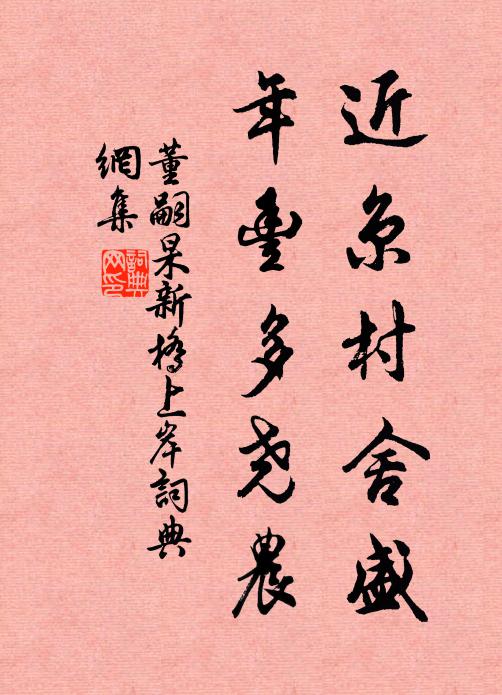 近京村舍盛
年豊多尧農
董嗣杲新橋上岸詞典
網集
詞典
网印